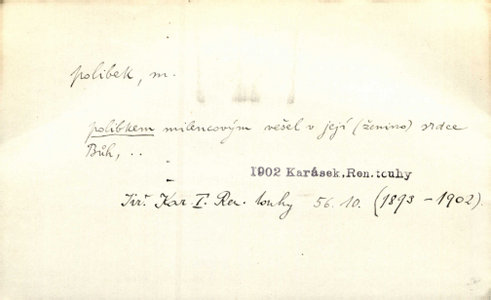 polibek, m.
polibkem milencovým vešel v její (ženino) srdce
Bůh, ..
1902 Karásek, Ren. touhy
Jiř. Kar. I. Ren. touhy 56. 10. (1893 – 1902).